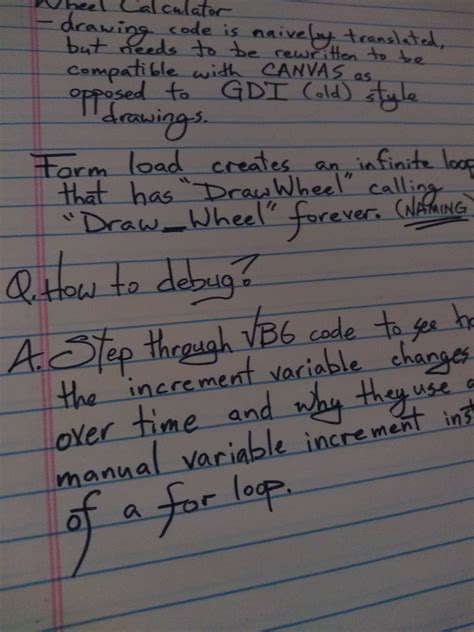 Wheel Calculator
- drawing code is naively translated,
but needs to be rewritten to be
compatible with CANVAS as
opposed to GDI (old) style
drawings.
Form load creates an infinite loop
that has "DrawWheel" calling
"Draw_Wheel" forever. (NAMING
Q. How to debug?
A. Step through VB6 code to see
the increment variable changes
over time and why they use
manual variable increment
of a for loop.